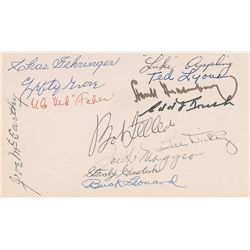 Chas. Gehringer
"Luke" Appling
Lefty Grove
Ted Lyons
U.C. "Red" Faber
Edd J Roush
Joe McCarthy
Bob Feller
Bill Dickey
Joe Di Maggio
Stanley Coveleski
Buck Leonard